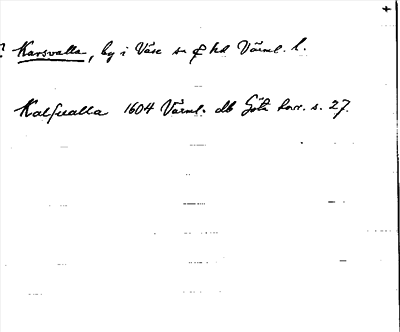 ? Karsvalla, by i Väse sn & hd Värml. l.
Kalfvalla 1604 Värml. db Göta horr. s. 27.